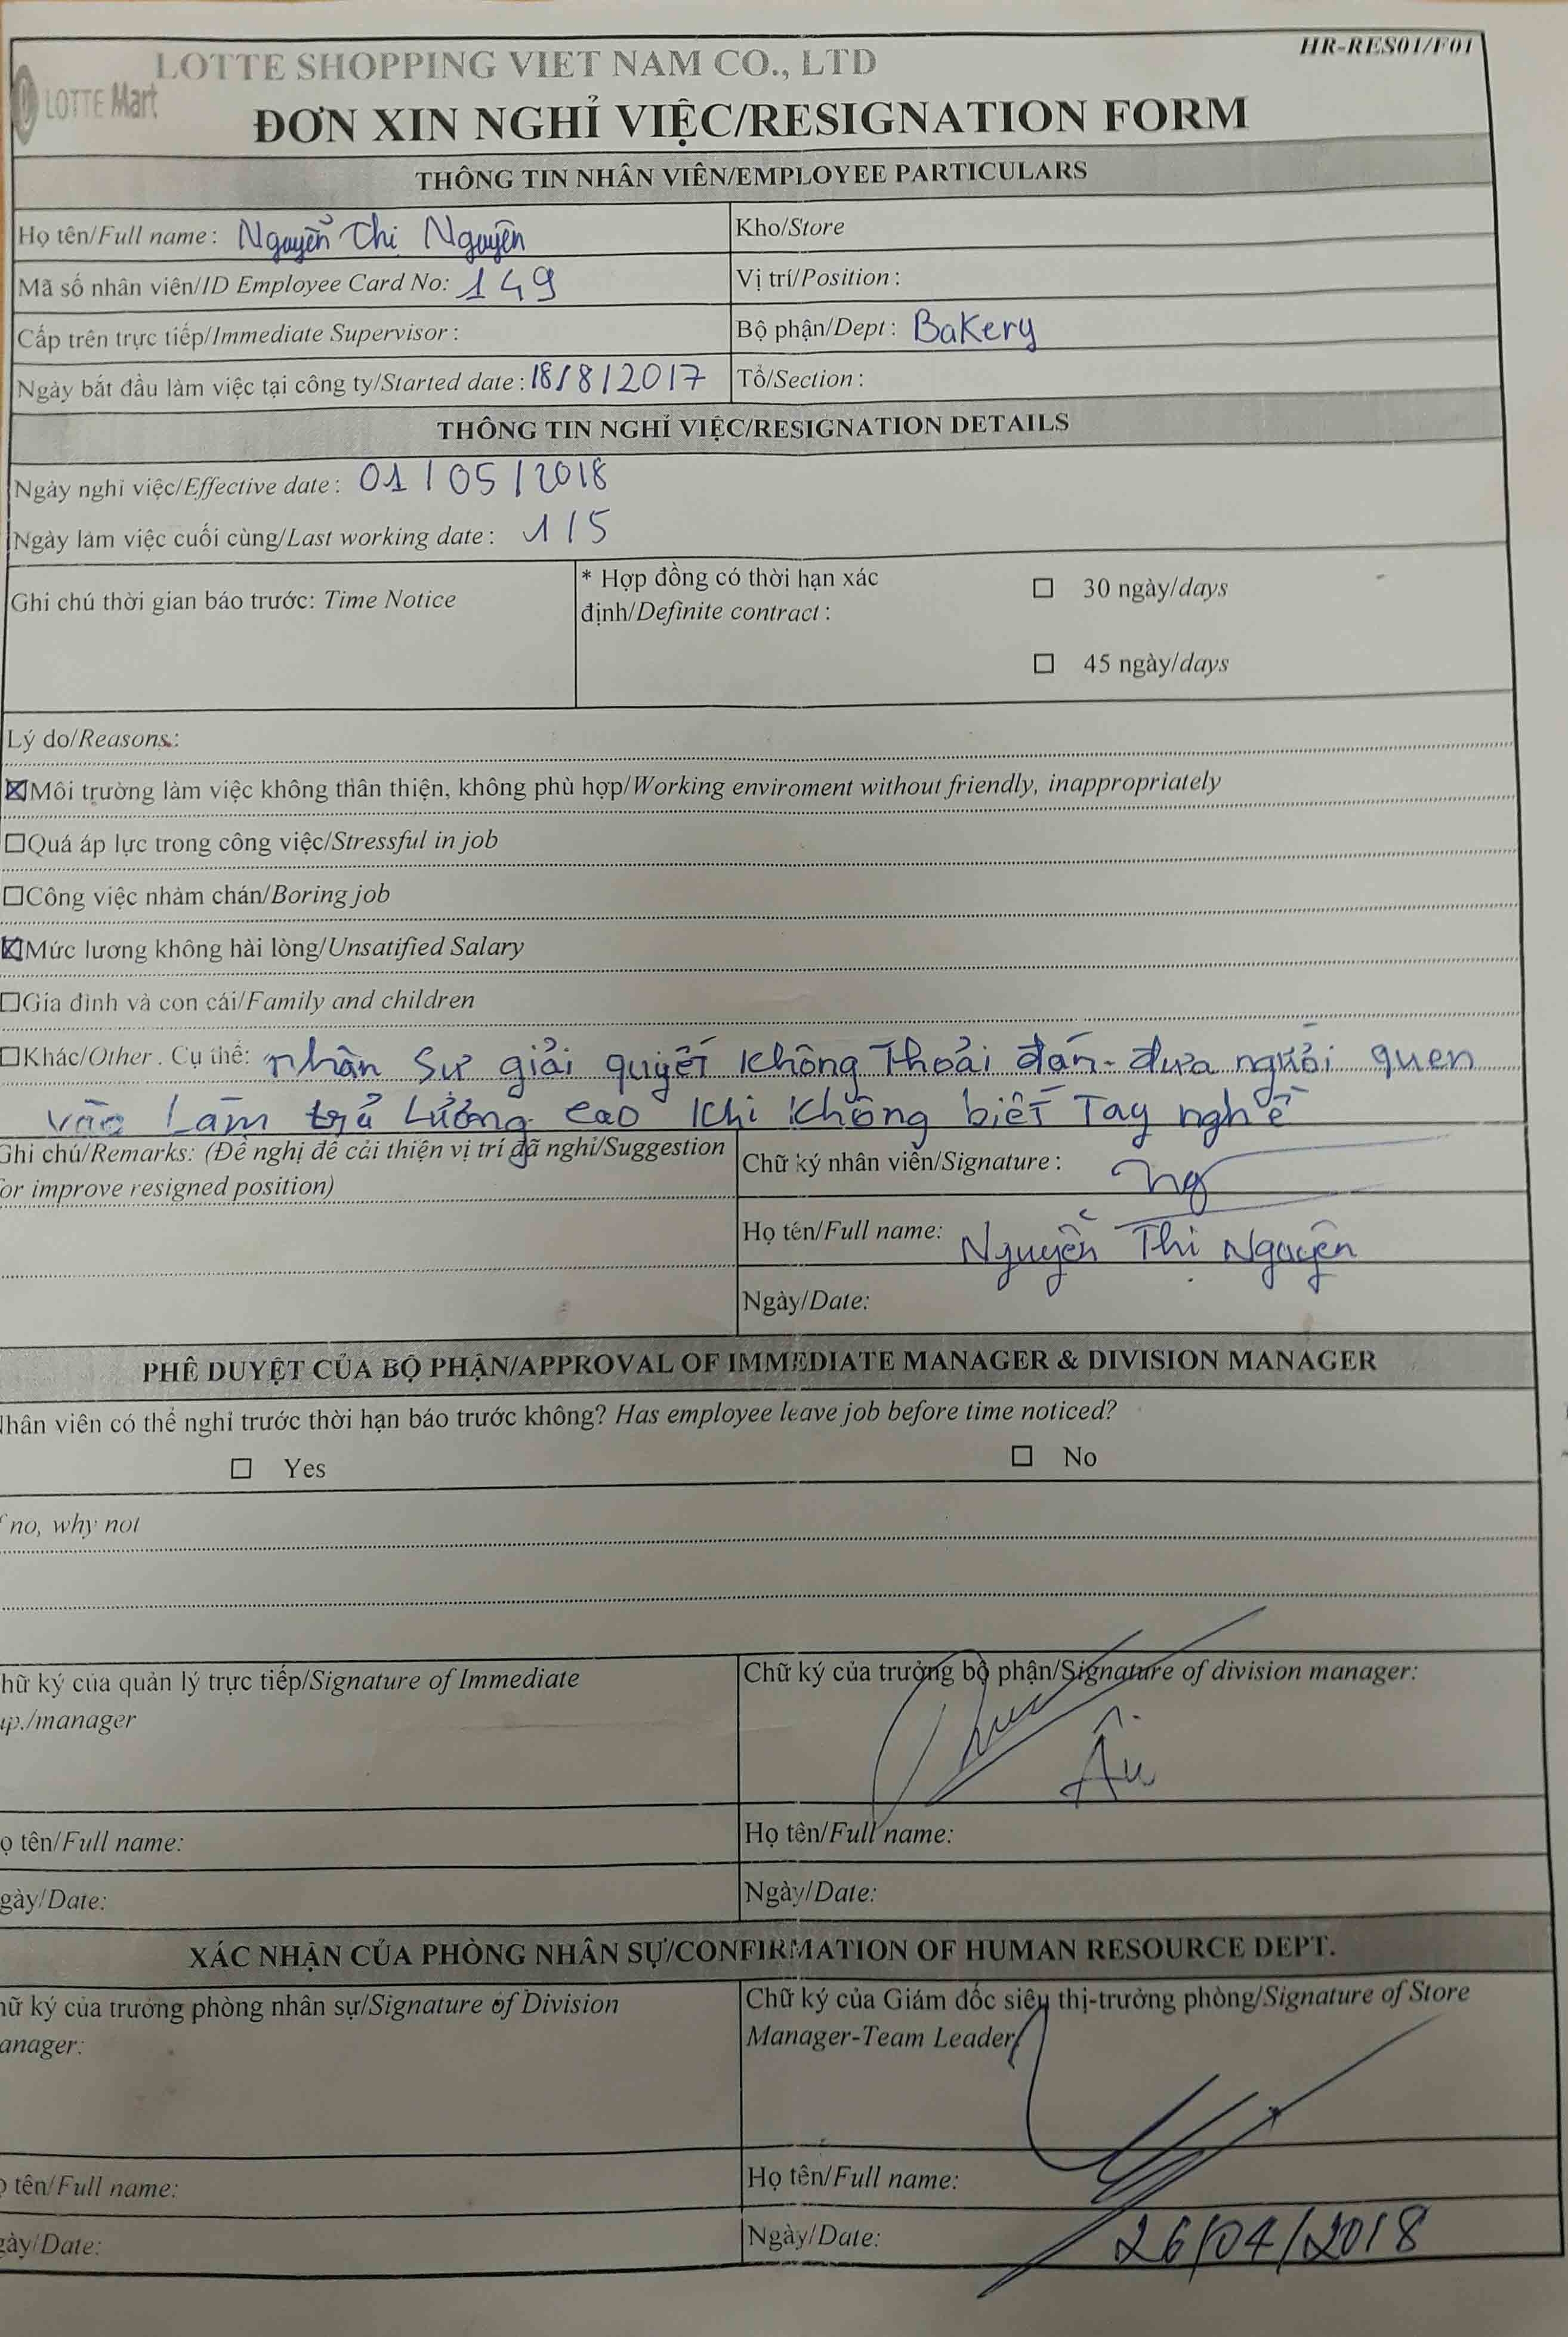 HR-RES01/F01
LOTTE SHOPPING VIET NAM CO., LTD
LOTTE Mart
ĐƠN XIN NGHỈ VIỆC/RESIGNATION FORM
THÔNG TIN NHÂN VIÊN/EMPLOYEE PARTICULARS
Họ tên/Full name: Nguyễn Thị Nguyên
Kho/Store
Mã số nhân viên/ID Employee Card No: 149
Vị trí/Position:
Cấp trên trực tiếp/Immediate Supervisor:
Bộ phận/Dept: Bakery
Ngày bắt đầu làm việc tại công ty/Started date: 18/8/2017
Tổ/Section:
THÔNG TIN NGHỈ VIỆC/RESIGNATION DETAILS
Ngày nghỉ việc/Effective date: 01/05/2018
Ngày làm việc cuối cùng/Last working date: 1/5
Ghi chú thời gian báo trước: Time Notice
* Hợp đồng có thời hạn xác
định/Definite contract:
☐ 30 ngày/days
☐ 45 ngày/days
Lý do/Reasons:
☒Môi trường làm việc không thân thiện, không phù hợp/Working enviroment without friendly, inappropriately
☐Quá áp lực trong công việc/Stressful in job
☐Công việc nhàm chán/Boring job
☒Mức lương không hài lòng/Unsatified Salary
☐Gia đình và con cái/Family and children
☐Khác/Other. Cụ thể: nhân sự giải quyết không thoải đán - đưa người quen
vào làm trả lương cao khi không biết tay nghề
Ghi chú/Remarks: (Đề nghị để cải thiện vị trí đã nghỉ/Suggestion
for improve resigned position)
Chữ ký nhân viên/Signature: Ng
Họ tên/Full name: Nguyễn Thị Nguyên
Ngày/Date:
PHÊ DUYỆT CỦA BỘ PHẬN/APPROVAL OF IMMEDIATE MANAGER & DIVISION MANAGER
Nhân viên có thể nghỉ trước thời hạn báo trước không? Has employee leave job before time noticed?
☐ Yes
☐ No
f no, why not
hữ ký của quản lý trực tiếp/Signature of Immediate
up./manager
Chữ ký của trưởng bộ phận/Signature of division manager:
Âu
ọ tên/Full name:
Họ tên/Full name:
gày/Date:
Ngày/Date:
XÁC NHẬN CỦA PHÒNG NHÂN SỰ/CONFIRMATION OF HUMAN RESOURCE DEPT.
hữ ký của trưởng phòng nhân sự/Signature of Division
anager:
Chữ ký của Giám đốc siêu thị-trưởng phòng/Signature of Store
Manager-Team Leader
ọ tên/Full name:
Họ tên/Full name:
gày/Date:
Ngày/Date: 26/04/2018